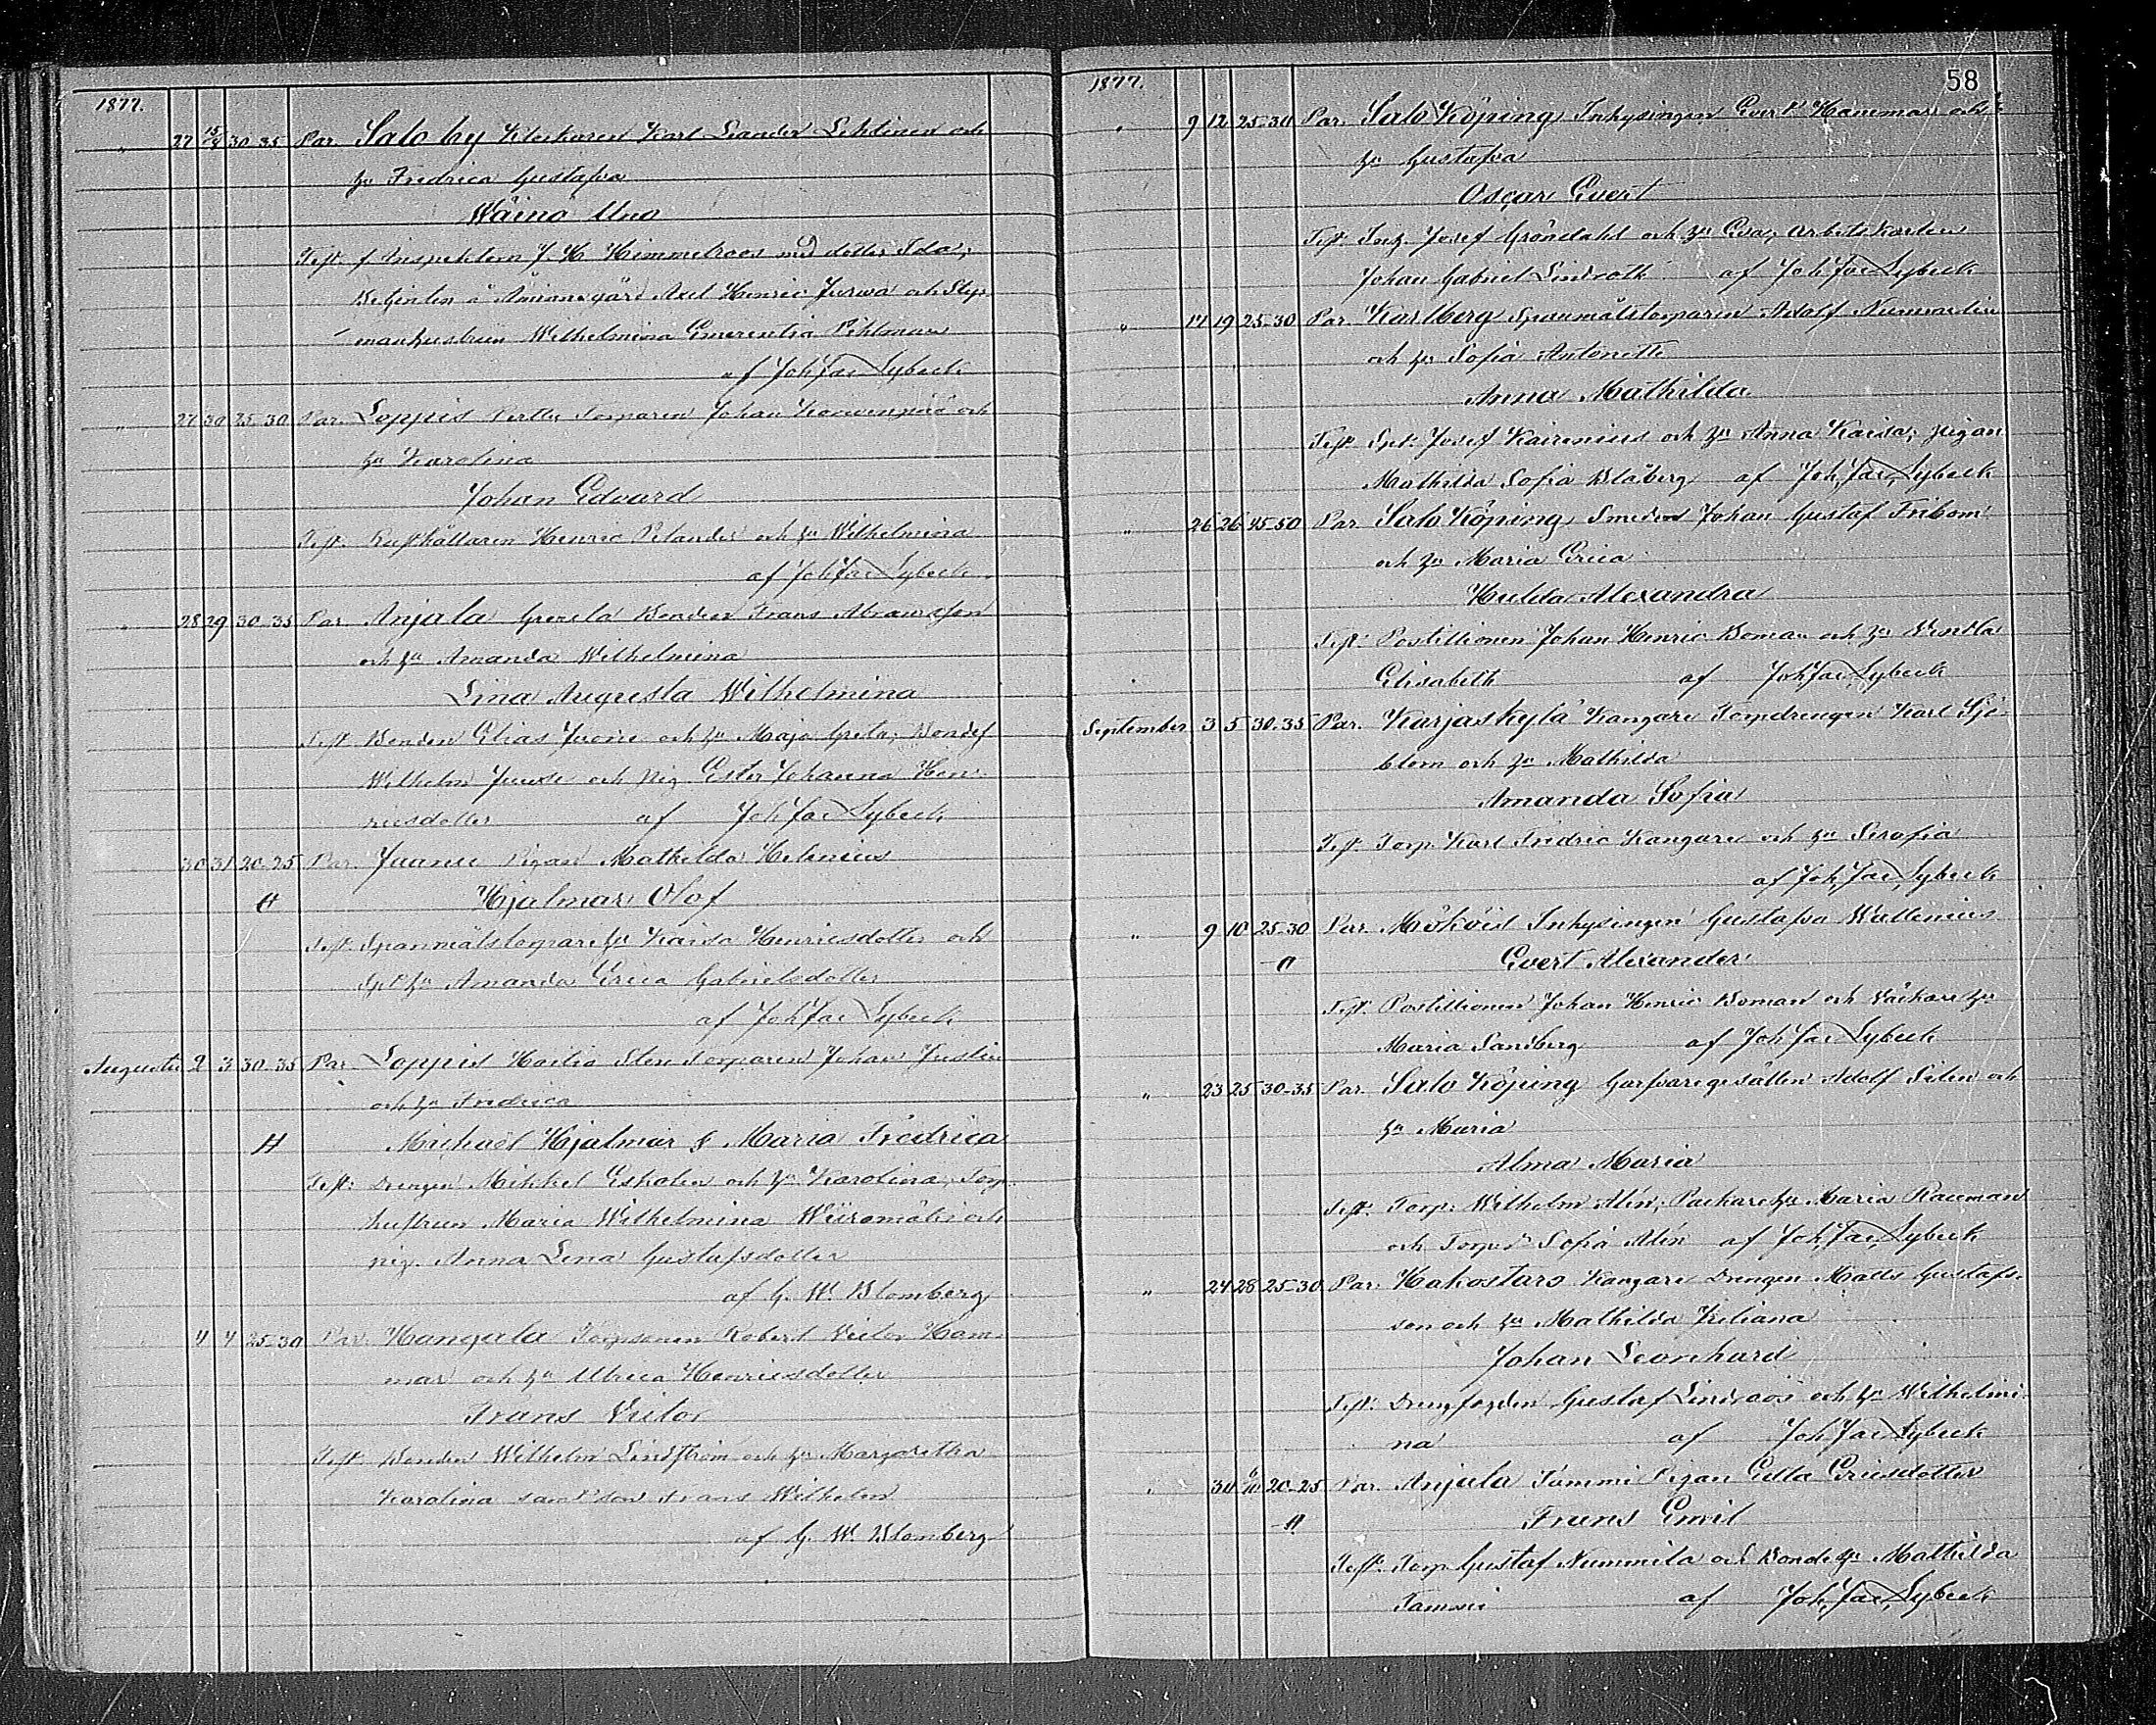 1877.
" 27 15/8 30-35 Par. Salo by Klockaren Karl Leander Lehtinen och
hu Fredrica Gustafva
Wäinö Uno
Test. f Inspektorn J. H. Himmelroos med dotter Ida,
Betjenten å Åminnegård Axel Henric Jurwa och Styr-
manhustrun Wilhelmina Emerentia Pihlman
af Joh Jac Lybeck
" 27 30 25-30 Par. Loppis Torparen Johan och
hu Karolina
Johan Edvard
Test. Rusthållaren Henric Pelander och hu Wilhelmina
af Joh Jac Lybeck
" 28 29 30-35 Par. Anjala Grerelä Bonden Frans Abramsson
och hu Amanda Wilhelmina
Lina Augusta Wilhelmina
Test. Bonden Elias och hu Maja Greta; Bondes
Wilhelm och pig. Ester Johanna Hen-
ricsdotter af Joh Jac Lybeck
30 31 20-25 Par. Pigan Mathilda Helenius
Hjalmar Olof
Test. Spanmålstorpare hu Kaisa Henricsdotter och
hu Amanda Erica Gabrielsdotter
af Joh Jac Lybeck
Augusti 2 3 30-35 Par. Loppis Torparen Johan Justin
och hu Fredrica
H Michaël Hjalmar & Maria Fredrica
Test: Drengen Mikkel Eskolin och hu Karolina, Torp.
hustrun Maria Wilhelmina och
pig. Anna Lena Gustafsdotter
af G. W. Blomberg
4 4 25-30 Par. Hangala Torpsonen Robert Victor Ham-
mar och hu Ulrica Henricsdotter
Frans Victor
Test. Bonden Wilhelm Lindström och hu Margaretha
Karolina samt son Frans Wilhelm
af G. W. Blomberg
1877. 58
" 9 12 25-30 Par. Salo Köping Inhysingen Evert Hammar och
hu Gustafva
Oscar Evert
Test. Torp. Josef Gröndahl och hu Eva; arbetskarlen
Johan Gabriel Lindroth af Joh Jac Lybeck
" 17 19 25-30 Par. Karlberg Spanmålstorparen Adolf Nummelin
och hu Sofia Antonette
Anna Mathilda
Test. Josef Kairenius och hu Anna Kaisa; pigan
Mathilda Sofia Blåberg af Joh. Jac. Lybeck
" 26 26 45-50 Par. Salo Köping, Smeden Johan Gustaf Fribom
och hu Maria Erica
Hulda Alexandra
Test. Postillionen Johan Henric Boman och hu Wendla
Elisabeth af Joh. Jac. Lybeck
September 3 5 30-35 Par. Karjaskylä Kangare Torpdrengen Karl Sjö-
blom och hu Mathilda
Amanda Sofia
Test. Torp. Karl Fredric Kangare och hu Serafia
af Joh. Jac. Lybeck
" 9 10 25-30 Par. Inhysingen Gustafva Wallenius
Evert Alexander
Test. Postillionen Johan Henric Boman och hu
Maria Sandberg af Joh Jac Lybeck
" 23 25 30-35 Par. Salo Köping Garfvaregesällen Adolf Silen och
hu Maria
Alma Maria
Test. Torp. Wilhelm Alén; Packare hu Maria Rauman
och Sofia Alén af Joh. Jac. Lybeck
" 24 28 25-30 Par. Hakostaro Kangare Drengen Matts Gustafs-
son och hu Mathilda Kiliana
Johan Leonhard
Test. Drengfogden Gustaf Lindroos och hu Wilhelmi-
na af Joh Jac Lybeck
" 30 6/10 20-25 Par. Anjala Tammi Pigan Ericsdotter
Frans Emil
Test. Torp Gustaf Nummila och Bonde hu Mathilda
Tammi af Joh. Jac. Lybeck